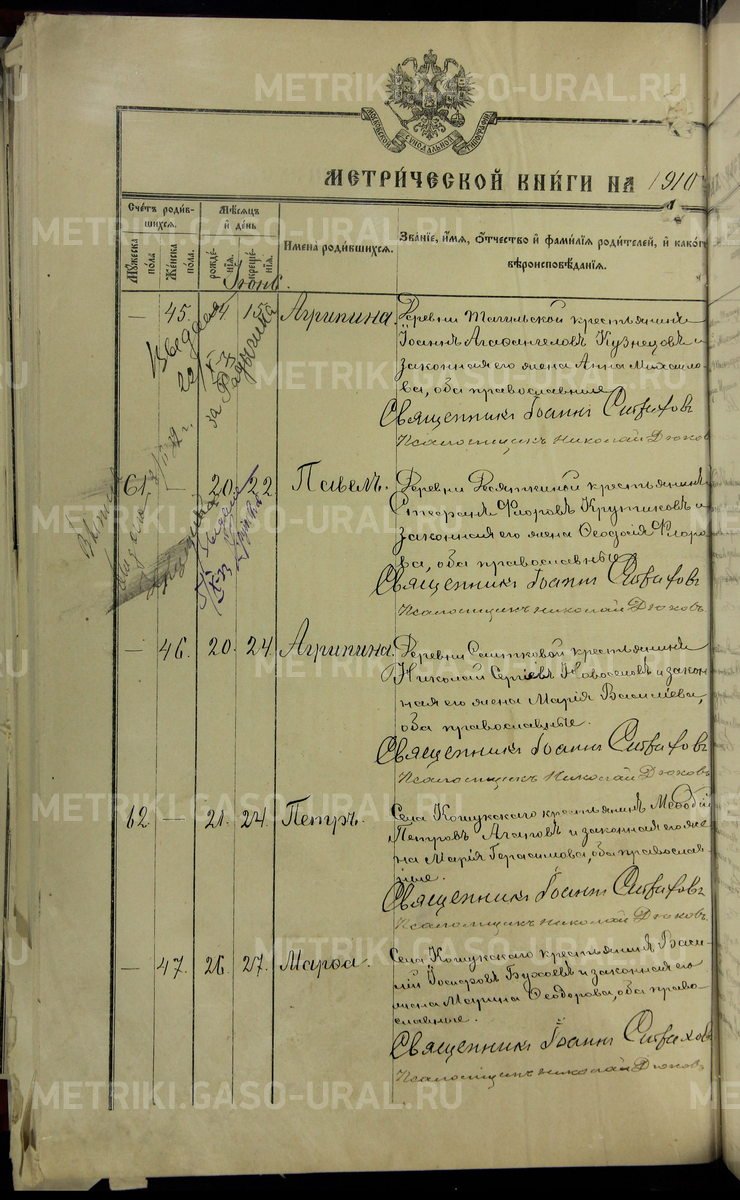 МОСКОВСКОЙ СѴНОДАЛЬНОЙ ТИПОГРАФІИ
МЕТРИ́ЧЕСКОЙ КНИ́ГИ НА 1910
Сче́тъ роди́в-
шихся.
Мѣ́сяцъ
и҆ де́нь
Му́жеска
по́ла
Же́нска
по́ла.
рожде́-
нїя.
креще́-
нїя.
И҆мена̀ роди́вшихся.
Зва́нїе, и҆́мя, ѻ҆́тчество и҆ фами́лїя роди́телей, и҆ како́гѡ
вѣроисповѣ́данїя.
Іюнь.
— 45. 14 15 Агрипина. Деревни Тагильской крестьянинъ
Іоаннъ Агафангеловъ Кузнецовъ и
законная его жена Анна Михаило-
ва, оба православные
Священникъ Іоаннъ
Псаломщикъ Николай Дюковъ
61 — 20. 22. Павелъ. Деревни крестьянинъ
Стефанъ Флоровъ Крутиковъ и
законная его жена Ѳеодосія Флоро-
ва, оба православные
Священникъ Іоаннъ
Псаломщикъ Николай Дюковъ.
— 46. 20. 24. Агрипина. Деревни крестьянинъ
Николай Сергіевъ Новоселовъ и закон-
ная его жена Марія Василіева,
оба православные.
Священникъ Іоаннъ
Псаломщикъ Николай Дюковъ
62 — 21. 24. Петръ. Села Кошукскаго крестьянинъ Меѳодій
Петровъ Агаповъ и законная его же-
на Марія Герасимова, оба православ-
ные.
Священникъ Іоаннъ
Псаломщикъ Николай Дюковъ.
— 47. 26. 27. Марѳа. Села Кошукскаго крестьянинъ Васи-
лій Бухаевъ и законная его
жена Марина Ѳеодорова, оба право-
славные.
Священникъ Іоаннъ
Псаломщикъ Николай Дюковъ
METRIKI.GASO-URAL.RU